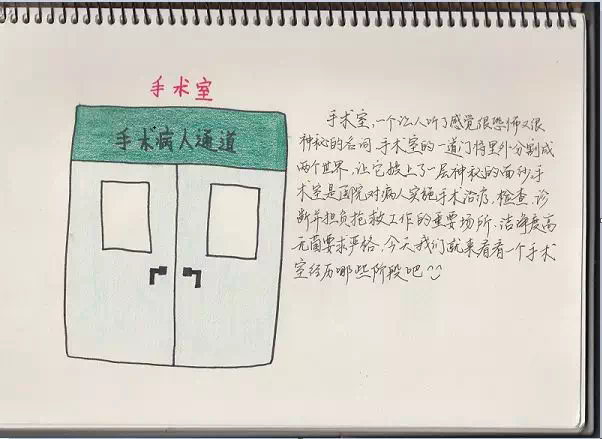 手术室
手术病人通道
手术室,一个让人听了感觉很恐怖又很
神秘的房间.手术室的一道门将里外分割成
两个世界,让它披上了一层神秘的面纱.手
术室是医院对病人实施手术治疗,检查,诊
断并担负抢救工作的重要场所.洁净度高
无菌要求严格,今天我们就来看看一个手术
室经历哪些阶段吧